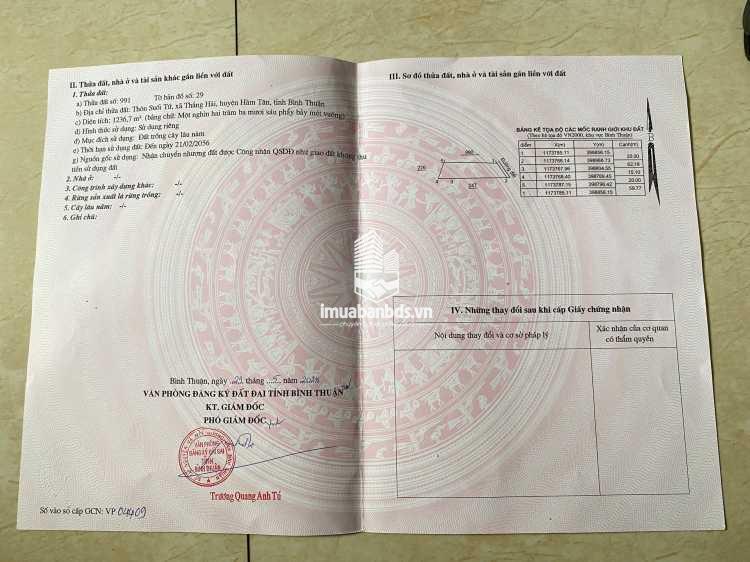 II. Thửa đất, nhà ở và tài sản khác gắn liền với đất
1. Thửa đất:
a) Thửa đất số: 991 Tờ bản đồ số: 29
b) Địa chỉ thửa đất: Thôn Suối Tứ, xã Thắng Hải, huyện Hàm Tân, tỉnh Bình Thuận
c) Diện tích: 1236,7 m² (bằng chữ: Một nghìn hai trăm ba mươi sáu phẩy bảy mét vuông)
d) Hình thức sử dụng: Sử dụng riêng
đ) Mục đích sử dụng: Đất trồng cây lâu năm
e) Thời hạn sử dụng đất: Đến ngày 21/02/2056
g) Nguồn gốc sử dụng: Nhận chuyển nhượng đất được Công nhận QSDĐ như giao đất không thu
tiền sử dụng đất
2. Nhà ở: -/-
3. Công trình xây dựng khác: -/-
4. Rừng sản xuất là rừng trồng: -/-
5. Cây lâu năm: -/-
6. Ghi chú:
Bình Thuận, ngày 29 tháng 5 năm
VĂN PHÒNG ĐĂNG KÝ ĐẤT ĐAI TỈNH BÌNH THUẬN
KT. GIÁM ĐỐC
PHÓ GIÁM ĐỐC
VĂN PHÒNG
ĐĂNG KÝ ĐẤT ĐAI
TỈNH
BÌNH THUẬN
Trương Quang Anh Tú
Số vào sổ cấp GCN: VP 04409
III. Sơ đồ thửa đất, nhà ở và tài sản khác gắn liền với đất
B
BẢNG KÊ TỌA ĐỘ CÁC MỐC RANH GIỚI KHU ĐẤT
(Theo hệ tọa độ VN2000, khu vực Bình Thuận)
điểm X(m) Y(m) Cạnh(m)
20.00
62.16
15.10
20.00
59.77
IV. Những thay đổi sau khi cấp Giấy chứng nhận
Nội dung thay đổi và cơ sở pháp lý
Xác nhận của cơ quan
có thẩm quyền
imuabanbds.vn